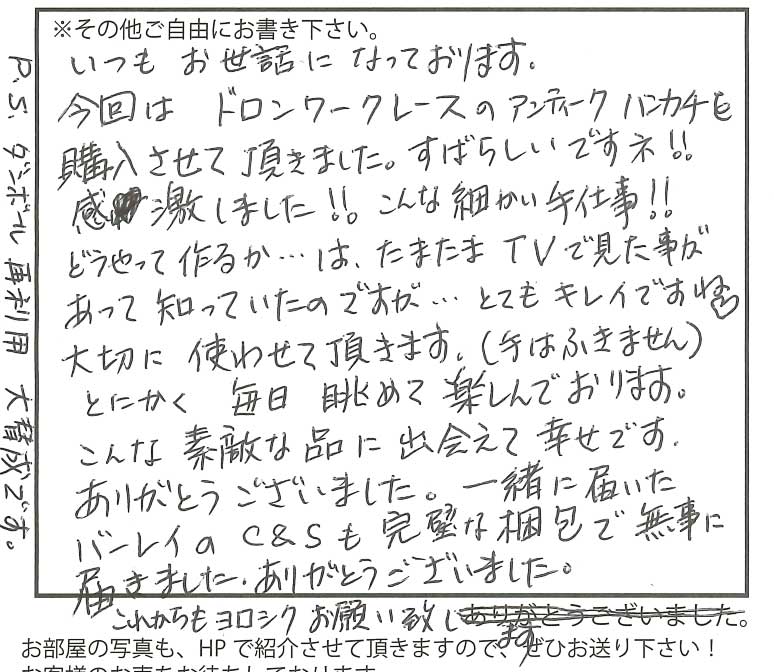 ※その他ご自由にお書き下さい。
いつも お世話に なっております。
今回は ドロンワークレースのアンティーク ハンカチを
購入させて頂きました。すばらしいですネ!!
感激しました!!。こんな細かい手仕事!!
どうやって作るか…は、たまたまTVで見た事が
あって知っていたのですが… とてもキレイですね
大切に 使わせて頂きます。(手はふきません)
とにかく 毎日 眺めて楽しんでおります。
こんな素敵な品に出会えて幸せです。
ありがとうございました。一緒に届いた
バーレイのC&Sも完璧な梱包で無事に
届きました。ありがとうございました。
これからもヨロシクお願い致しありがとうございました。
ます
お部屋の写真も、HPで紹介させて頂きますので、ぜひお送り下さい!
お客様のお声をお待ちしております
P.S. ダンボール再利用 大賛成です。